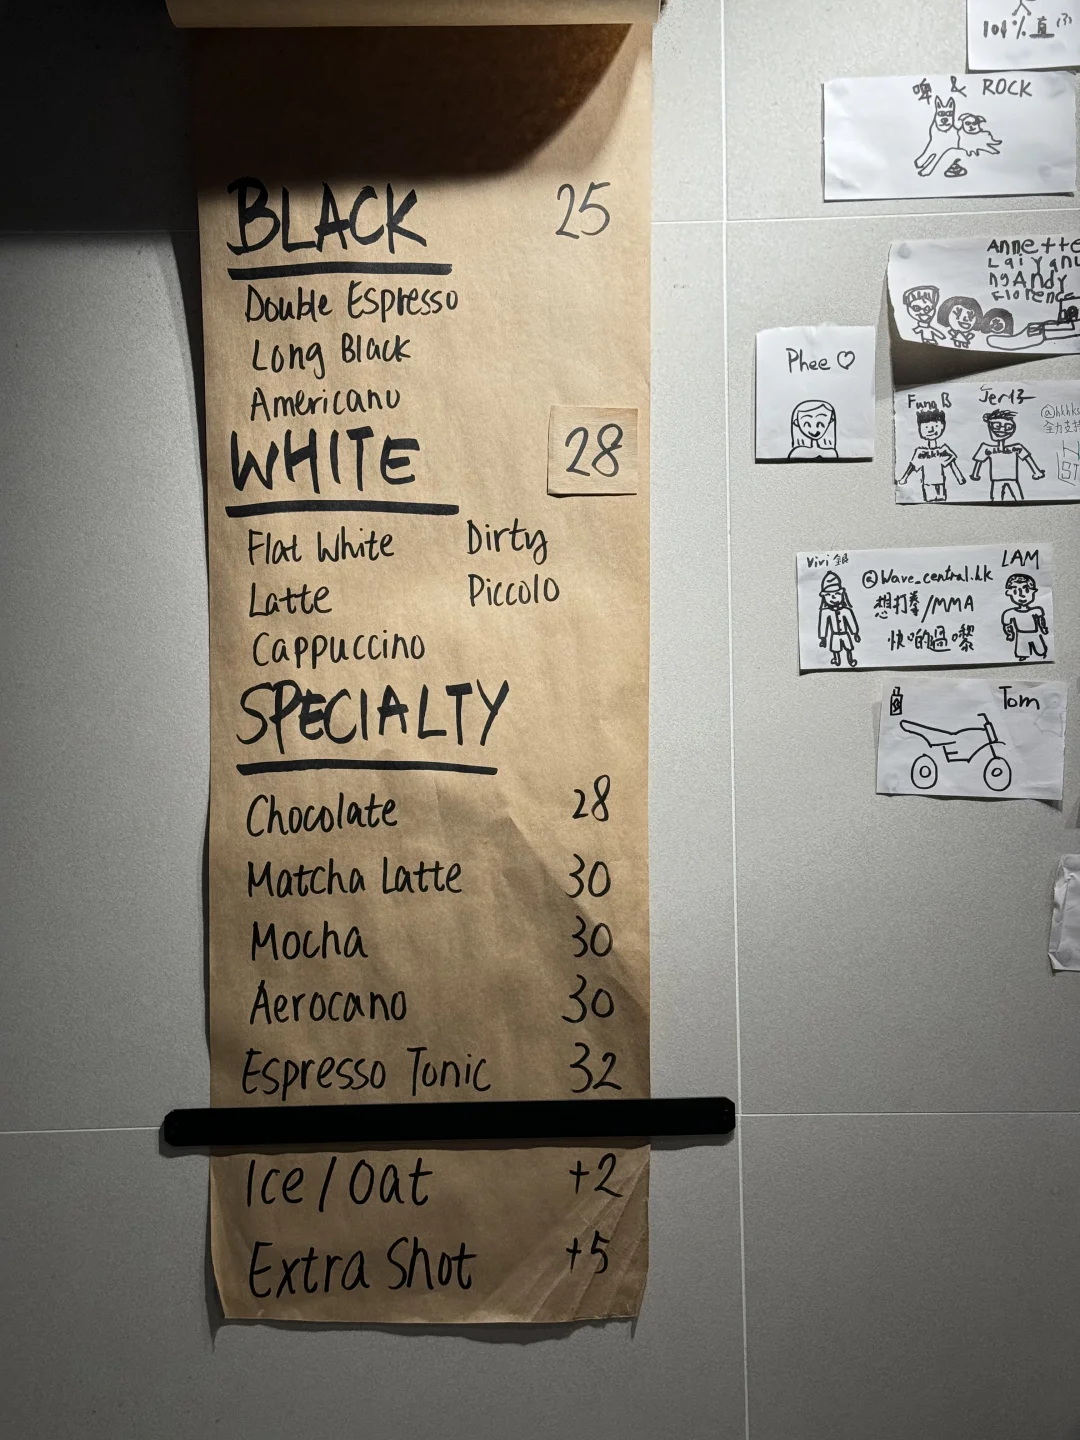 BLACK 25
Double Espresso
Long Black
Americano
WHITE 28
Flat White Dirty
Latte Piccolo
Cappuccino
SPECIALTY
Chocolate 28
Matcha Latte 30
Mocha 30
Aerocano 30
Espresso Tonic 32
Ice / Oat +2
Extra Shot +5
101%直
啤 & ROCK
Annette
Lai Yanu
ng Andy
Florence
Phee ♡
Fung B
全力支持
Vivi 銀 LAM
@Wave_central.hk
想打拳/MMA
快啲過嚟
Tom